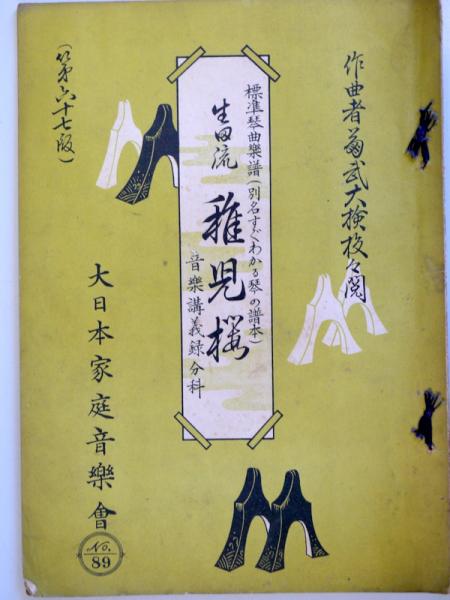 作曲者菊武大検校々閲
標準琴曲樂譜(別名すぐわかる琴の譜本)
生田流 稚児桜
音樂講義録分科
(第六十七版)
大日本家庭音樂會
No.
89